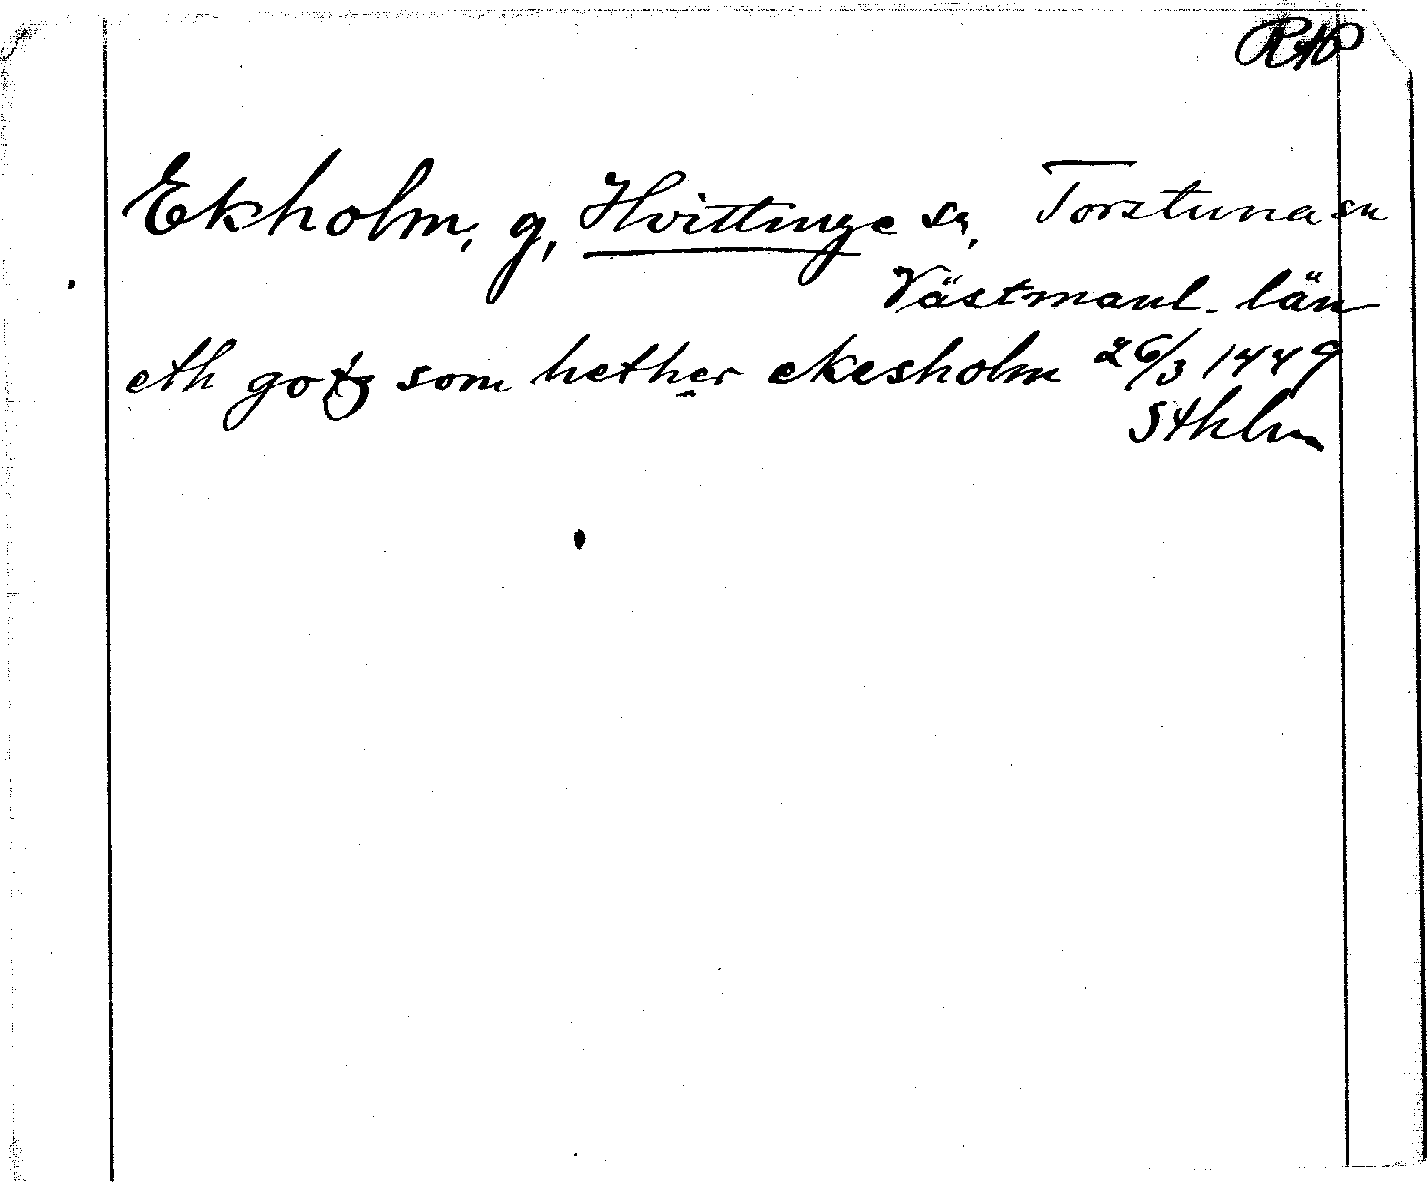 RAP
Ekholm, g, Hvittinge sn, Torstuna sn
Västmanl. län
eth gotz som hether ekesholm 26/3 1449
Sthlm